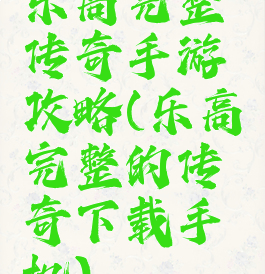 乐高完整
传奇手游
攻略(乐高
完整的传
奇下载手
机)